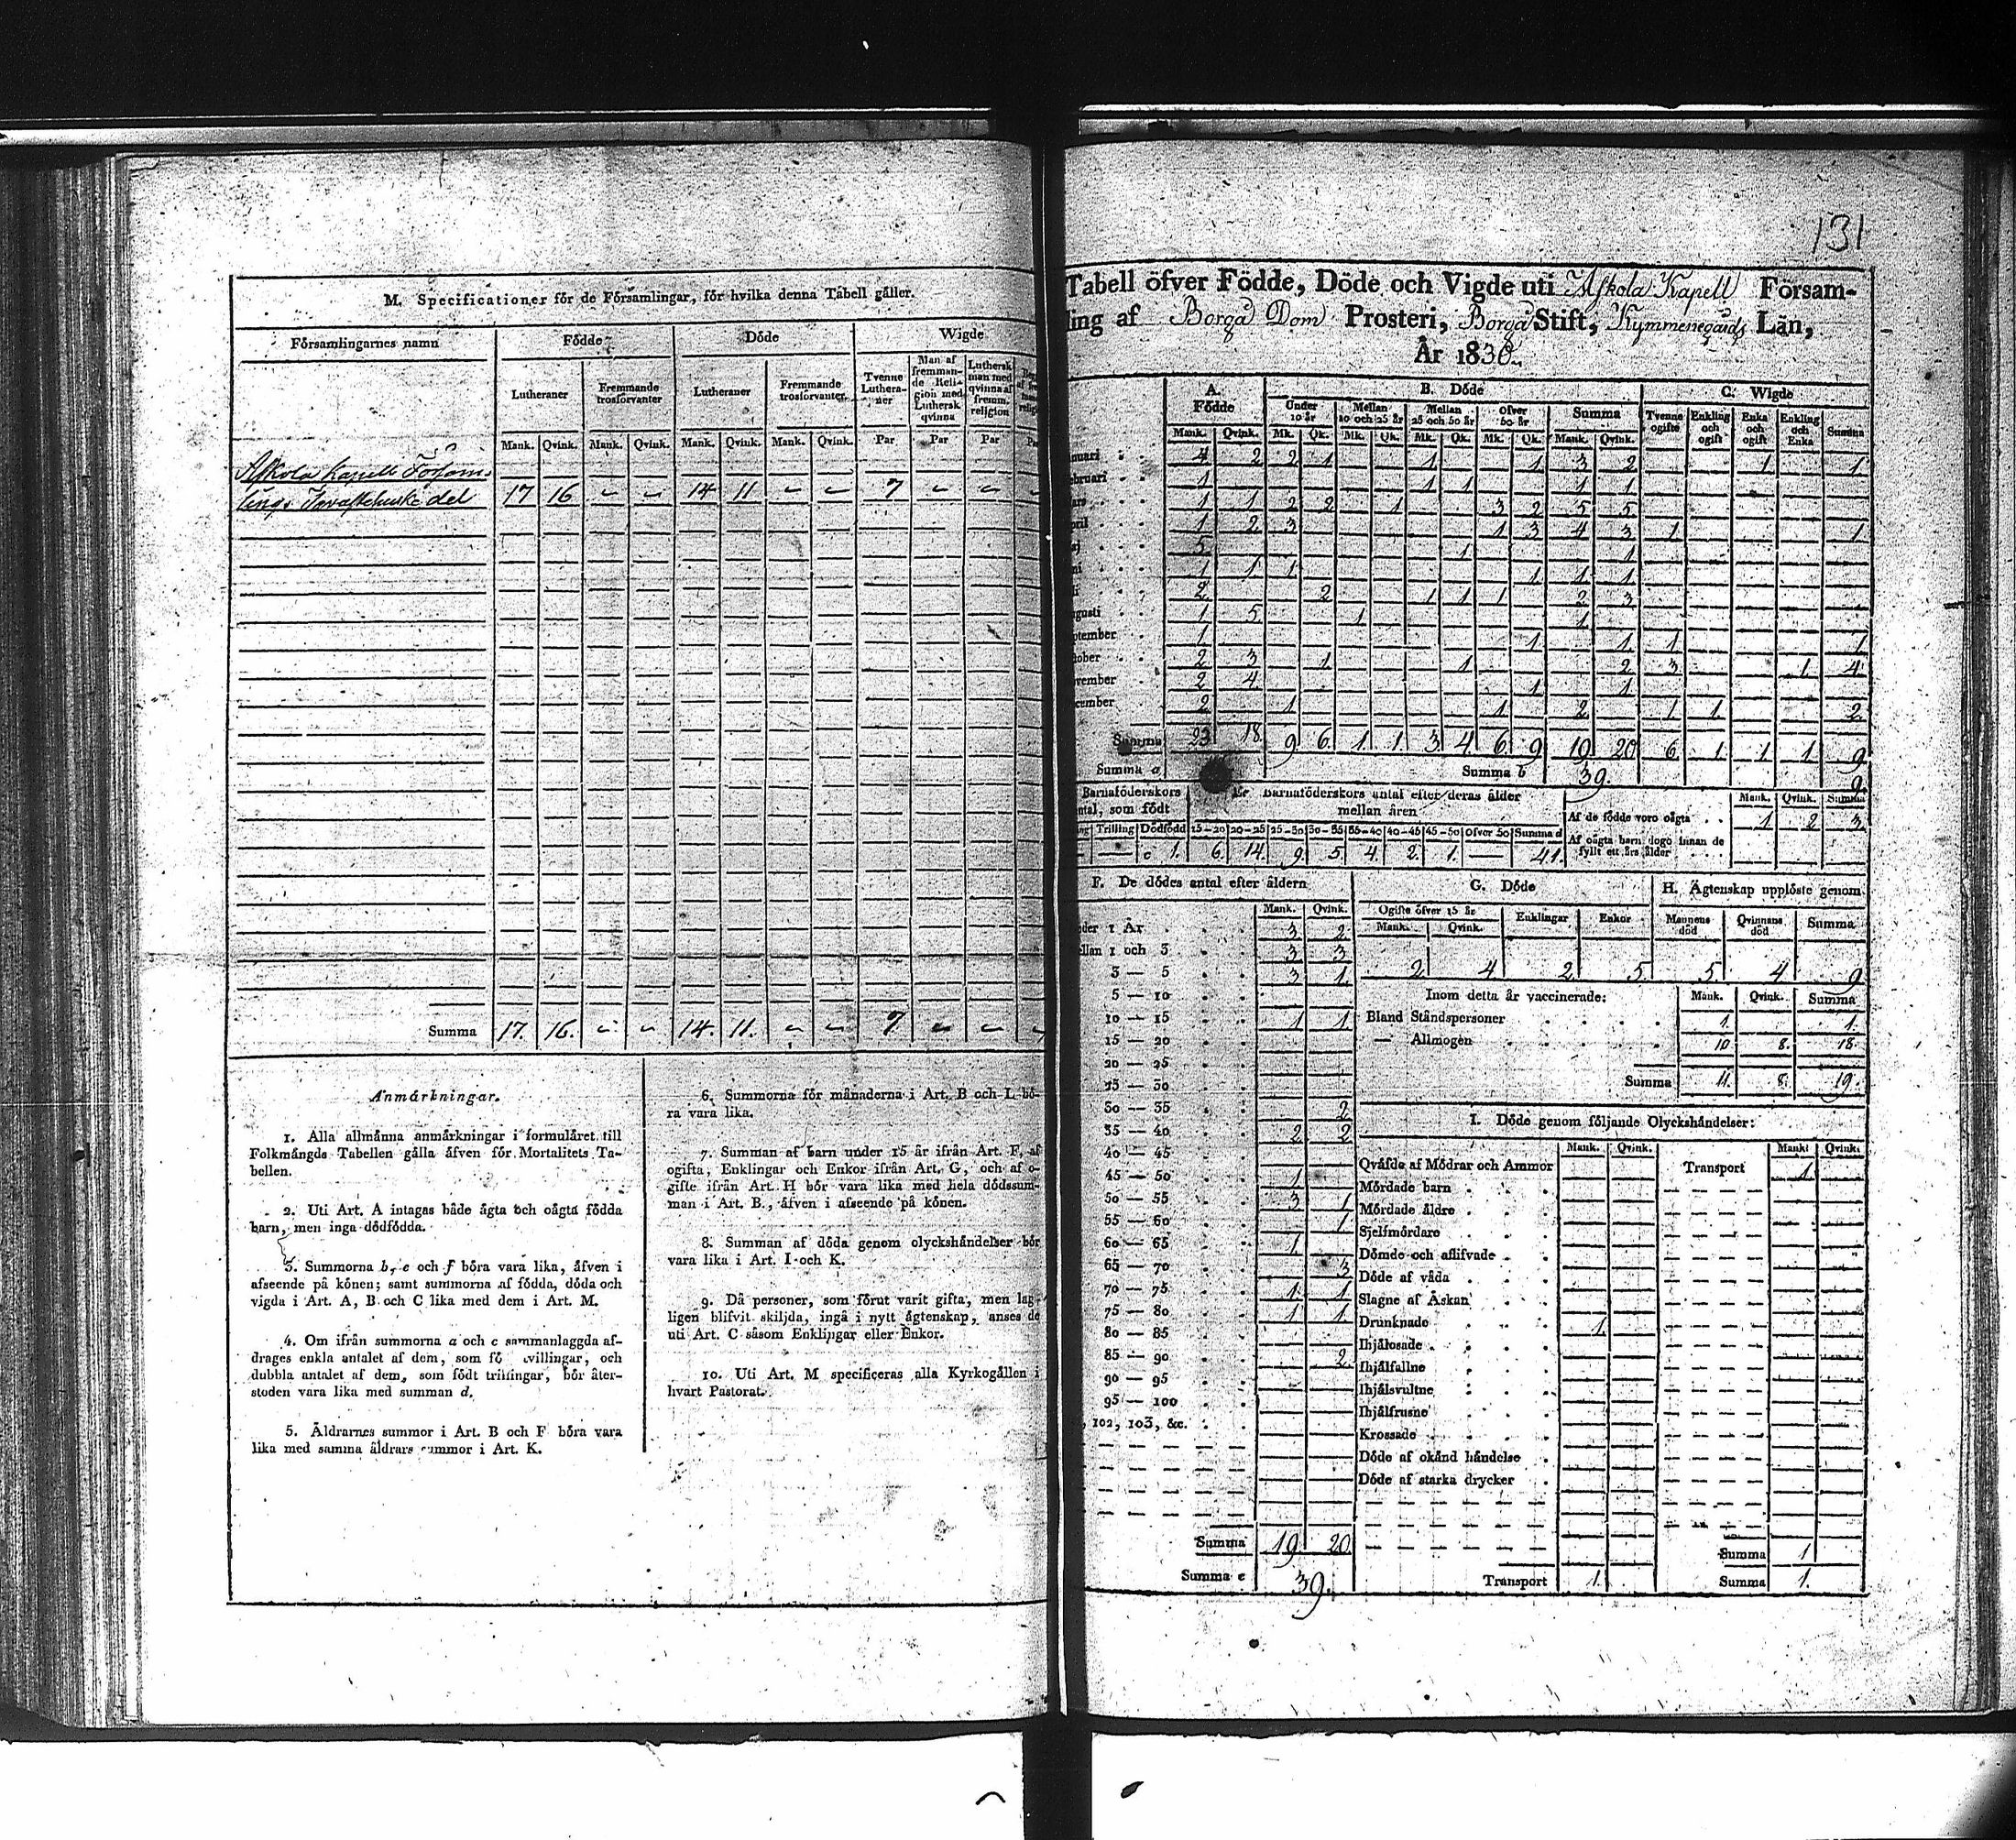 M. Specificationer för de Församlingar, för hvilka denna Tabell gäller.
Församlingarnes namn Födde Döde Wigde
Lutheraner Fremmande trosförvanter Lutheraner Fremmande trosförvanter Tvenne Lutheraner Man af fremmande Religion med Luthersk qvinna Luthersk man med qvinna af fremm. religion
Mank. Qvink. Mank. Qvink. Mank. Qvink. Mank. Qvink. Par Par Par
Askola Kapell Församlings
Tavastehuske del 17 16 – – 14 11 – – 7 – –
Summa 17. 16. – – 14. 11. – – 7 – –
Anmärkningar.
1. Alla allmänna anmärkningar i formuläret till
Folkmängds Tabellen gälla äfven för Mortalitets Ta-
bellen.
2. Uti Art. A intagas både ägta och oägta födda
barn, men inga dödfödda.
3. Summorna b, e och f böra vara lika, äfven i
afseende på könen; samt summorna af födda, döda och
vigda i Art. A, B och C lika med dem i Art. M.
4. Om ifrån summorna a och c sammanlaggda af-
drages enkla antalet af dem, som fö villingar, och
dubbla antalet af dem, som födt trillingar, bör åter-
stoden vara lika med summan d.
5. Åldrarnes summor i Art. B och F böra vara
lika med samma åldrars summor i Art. K.
6. Summorna för månaderna i Art. B och L bö-
ra vara lika.
7. Summan af barn under 15 år ifrån Art. F, af
ogifta, Enklingar och Enkor ifrån Art. G, och af o-
gifte ifrån Art. H bör vara lika med hela dödssum-
man i Art. B., äfven i afseende på könen.
8. Summan af döda genom olyckshändelser bör
vara lika i Art. I och K.
9. Då personer, som förut varit gifta, men lag-
ligen blifvit skiljda, ingå i nytt ägtenskap, anses de
uti Art. C såsom Enklingar eller Enkor.
10. Uti Art. M specificeras alla Kyrkogällen i
hvart Pastorat.
131
Tabell öfver Födde, Döde och Vigde uti Askola Kapell Försam-
ling af Borgå Dom Prosteri, Borgå Stift, Kymmenegårds Län,
År 1830.
A. Födde B. Döde C. Wigde
Under 10 år Mellan 10 och 25 år Mellan 25 och 50 år Öfver 50 år Summa Tvenne ogifte Enkling och ogift Enka och ogift Enkling och Enka Summa
Mank. Qvink. Mk. Qk. Mk. Qk. Mk. Qk. Mk. Qk. Mank. Qvink.
nuari 4 2 2 1 1 1 3 2 1 1
bruari 1 1 1 1 1
ars 1 1 2 2 1 3 2 5 5
pril 1 2 3 1 3 4 3 1 1
5 1 1
ni 1 1 1 1 1 1
li 2 2 1 1 1 2 3
gusti 1 5 1 1
ptember 1 1 1 1 1
tober 2 3 1 1 2 3 1 4
vember 2 4 1 1
cember 2 1 1 2 1 1 2
Summa 23 18 9 6 1 1 3 4 6 9 19 20 6 1 1 1 9
Summa a Summa b 39. 9.
Barnaföderskors
ntal, som födt
Trilling Dödfödd
– 1.
Barnaföderskors antal efter deras ålder
mellan åren
15–20 20–25 25–30 30–35 35–40 40–45 45–50 Öfver 50 Summa d
6. 14. 9. 5. 4. 2. 1. – 41.
Mank. Qvink. Summa
Af de födde voro oägta 1 2 3
Af oägta barn dogo innan de
fyllt ett års ålder
F. De dödes antal efter åldern
Mank. Qvink.
der 1 År 3 2
ellan 1 och 3 3 3
3 — 5 3 1
5 — 10
10 — 15 1 1
15 — 20
20 — 25
25 — 30
30 — 35 2
35 — 40 2 2
40 — 45
45 — 50 1
50 — 55 3 1
55 — 60 1
60 — 65 1
65 — 70 3
70 — 75 1 1
75 — 80 1 1
80 — 85
85 — 90 2
90 — 95
95 — 100
102, 103, &c.
Summa 19 20
Summa e 39.
G. Döde
Ogifte öfver 15 år Enklingar Enkor
Mank. Qvink.
2 4 2 5
H. Ägtenskap upplöste genom
Mannens död Qvinnans död Summa
5 4 9
Inom detta år vaccinerade: Mank. Qvink. Summa
Bland Ståndspersoner 1. 1.
— Allmogen 10 8. 18
Summa 11. 8. 19.
I. Döde genom följande Olyckshändelser:
Mank. Qvink. Mank. Qvink.
Qväfde af Mödrar och Ammor Transport 1
Mördade barn
Mördade äldre
Sjelfmördare
Dömde och aflifvade
Döde af våda
Slagne af Åskan
Drunknade 1.
Ihjälosade
Ihjälfallne
Ihjälsvultne
Ihjälfrusne
Krossade
Döde af okänd händelse
Döde af starka drycker
Summa 1
Transport 1. Summa 1.